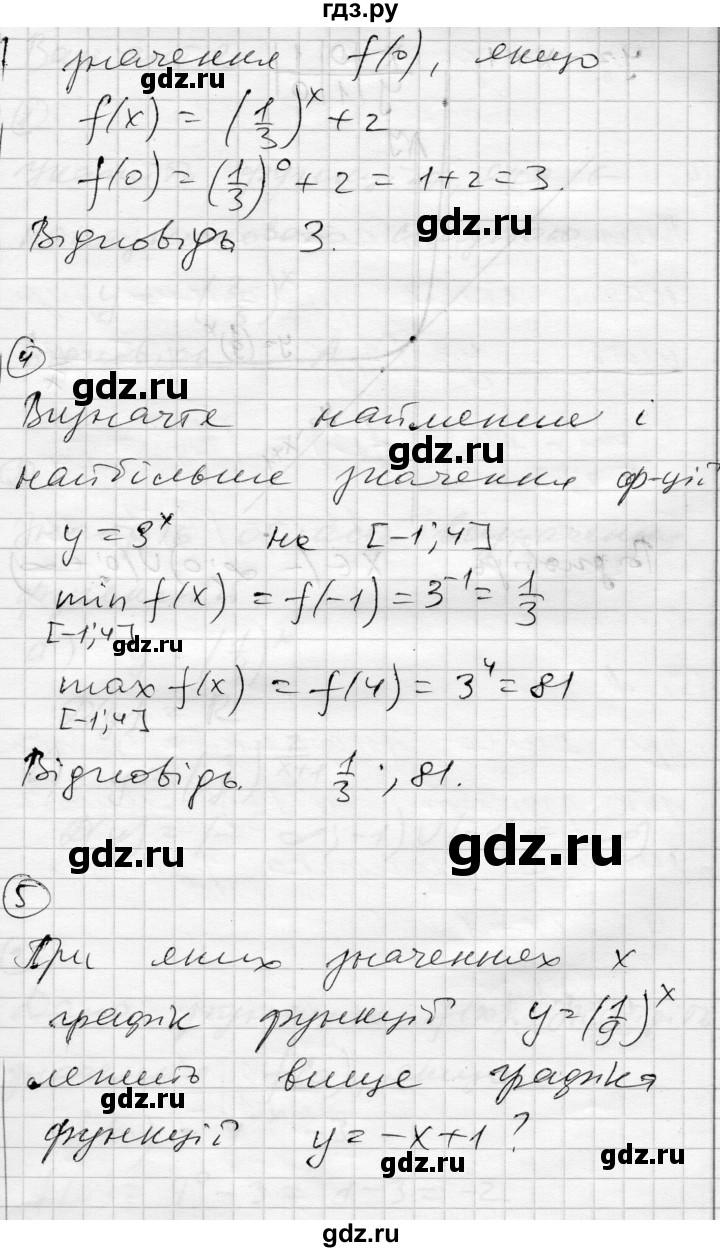 гдз.ру
значення f(0), якщо
f(x) = (1/3)^x + 2
gdz.ru
f(0) = (1/3)^0 + 2 = 1+2 = 3.
gdz.ru
Відповідь 3.
4
gdz.ru
Визначте найменше і
gdz.ru
найбільше значення ф-ції
y = 3^x на [-1; 4]
min f(x) = f(-1) = 3^-1 = 1/3
[-1; 4]
gdz.ru
max f(x) = f(4) = 3^4 = 81
[-1; 4]
Відповідь. 1/3; 81.
gdz.ru gdz.ru
5
При яких значеннях x
графік функції y = (1/9)^x
лежить вище графіка
gdz.ru
функції y = -x+1?
gdz.ru gdz.ru
gdz.ru